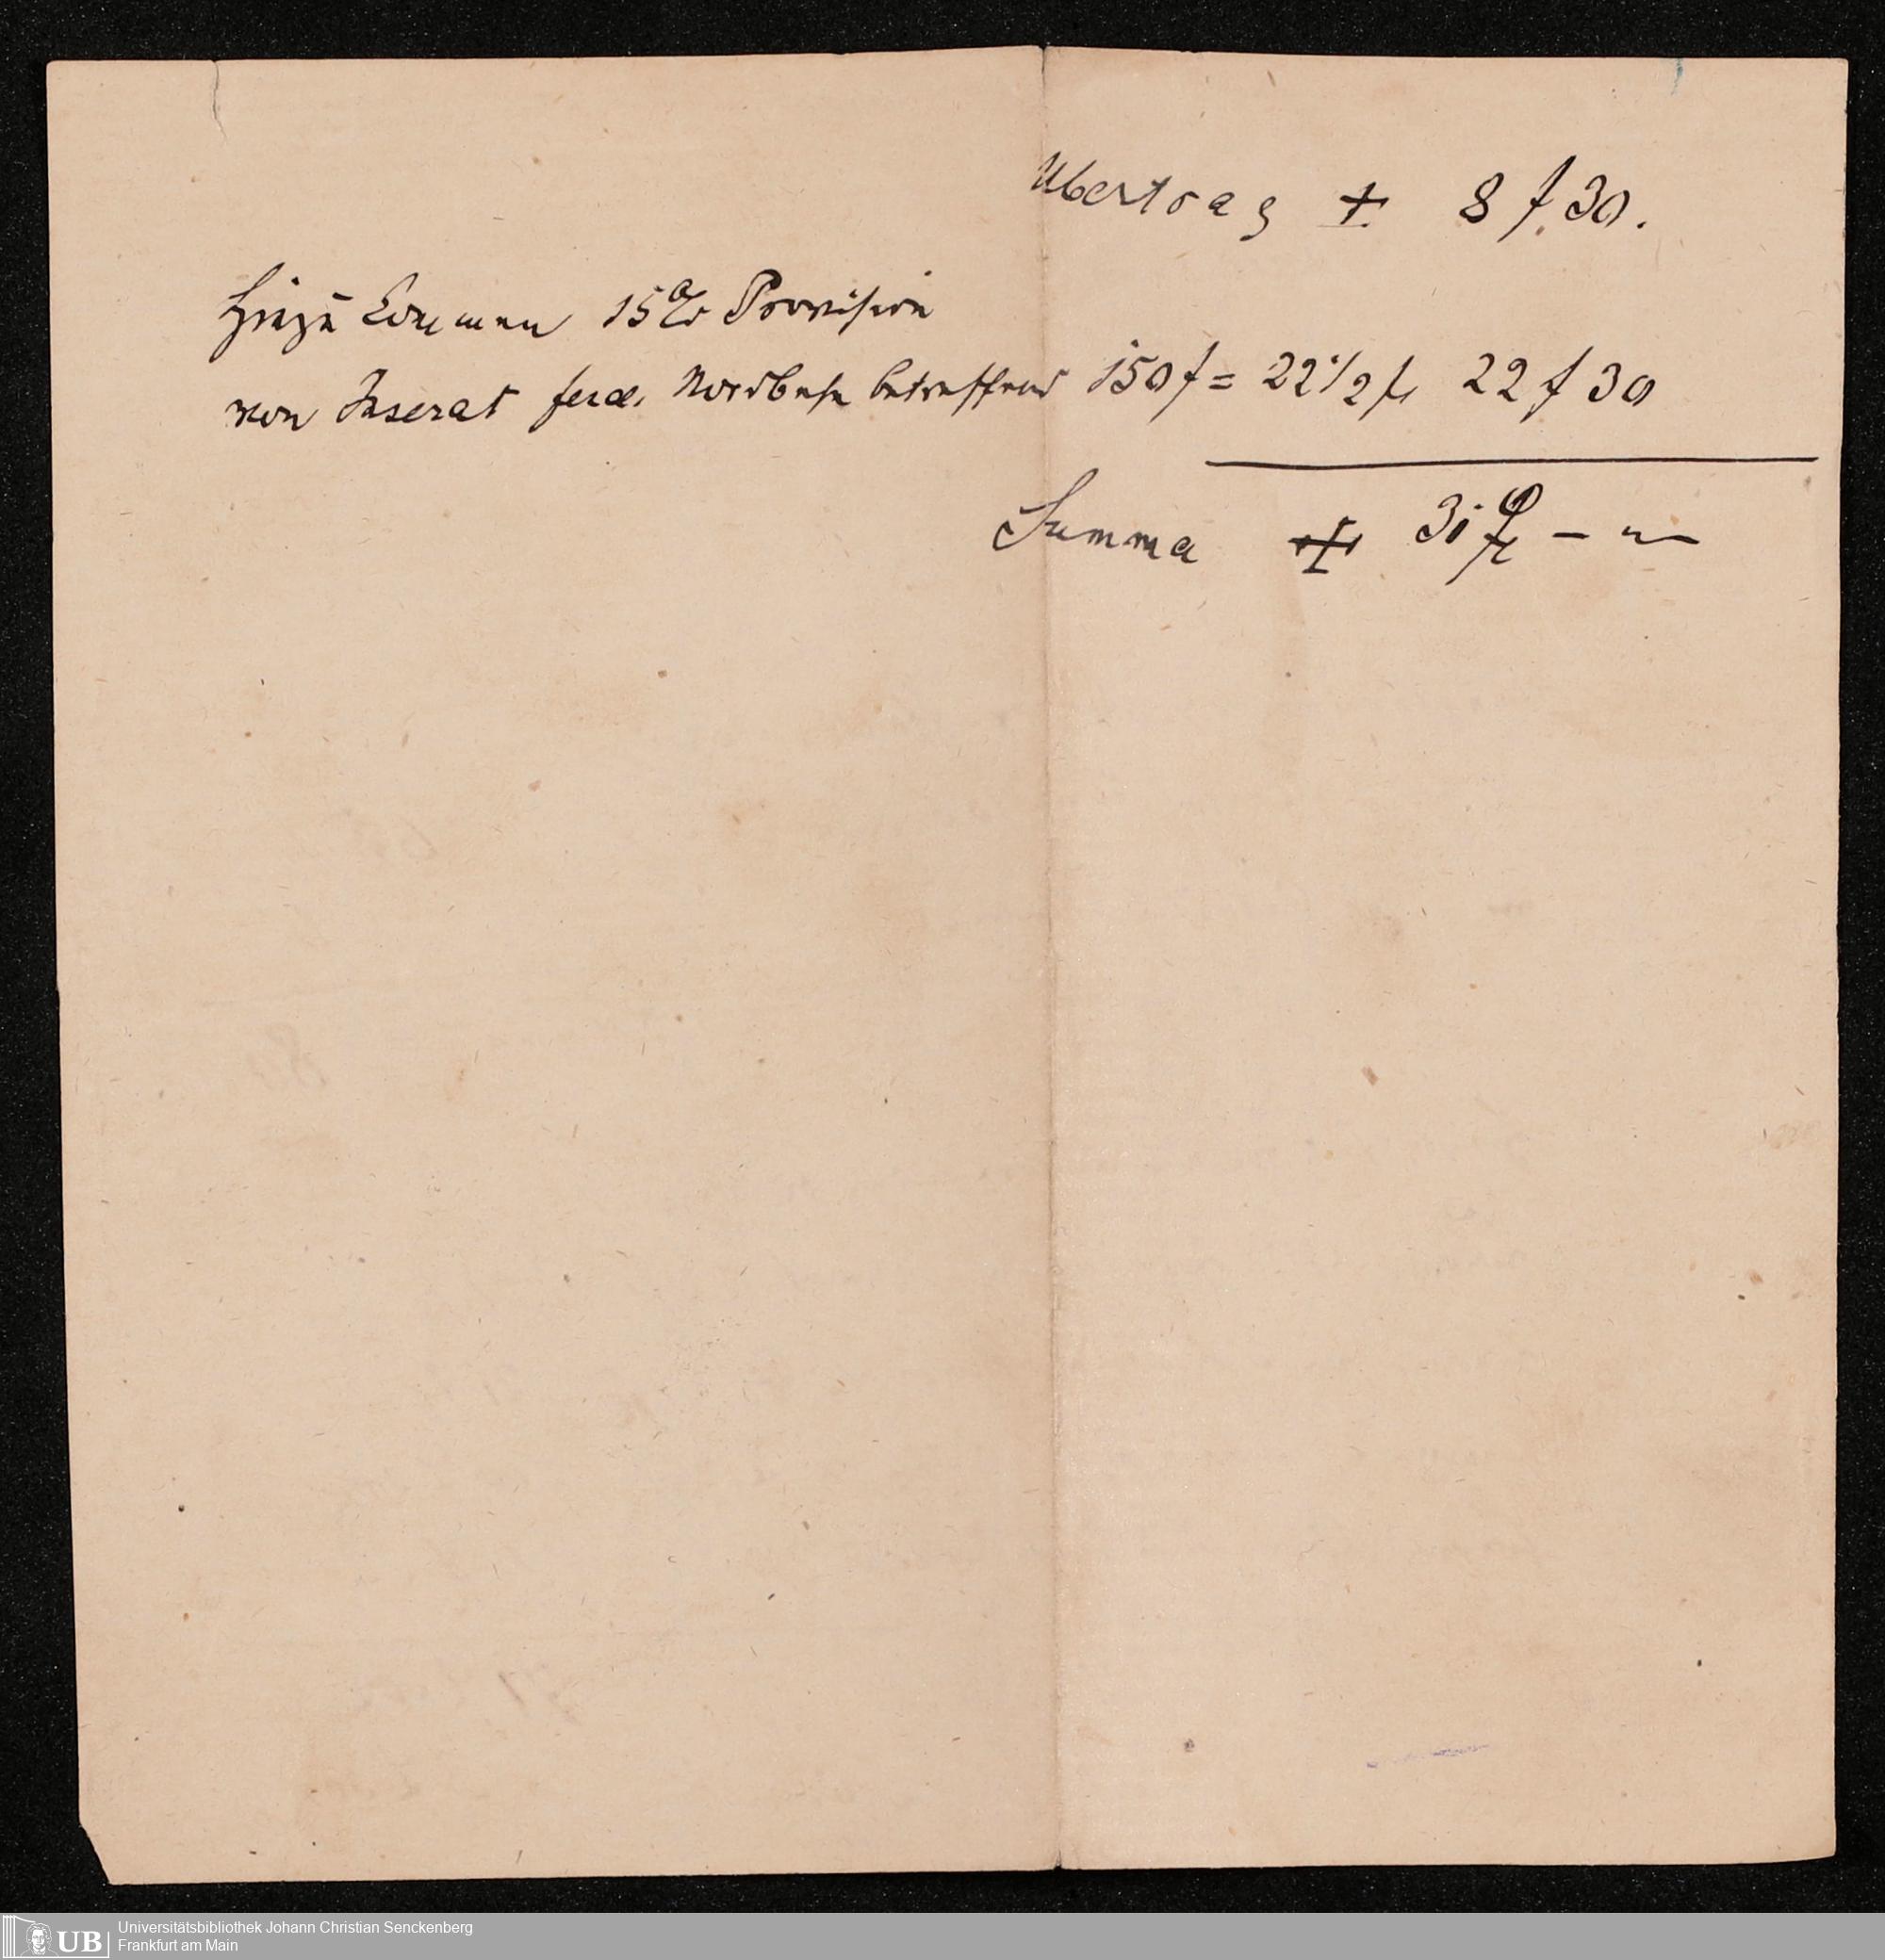 Übertrag + 8 f 30.
Hinzu kommen 15% Provision
von Inserat ferd. Nordbahn betreffend 150 f = 22 1/2 f 22 f 30
Summa + 31 f — —
UB Universitätsbibliothek Johann Christian Senckenberg
Frankfurt am Main